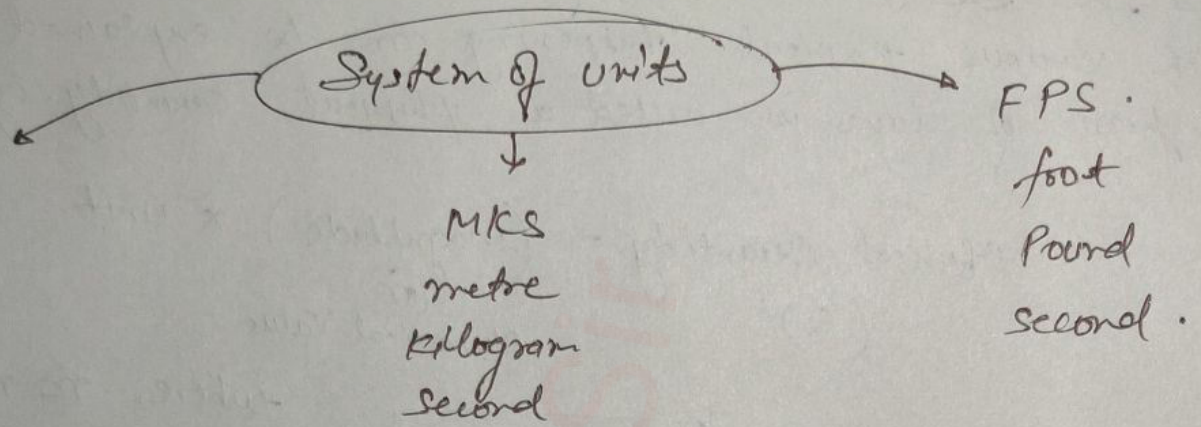 System of units
MKS
metre
Killogram
second
FPS.
foot
Pound
second.